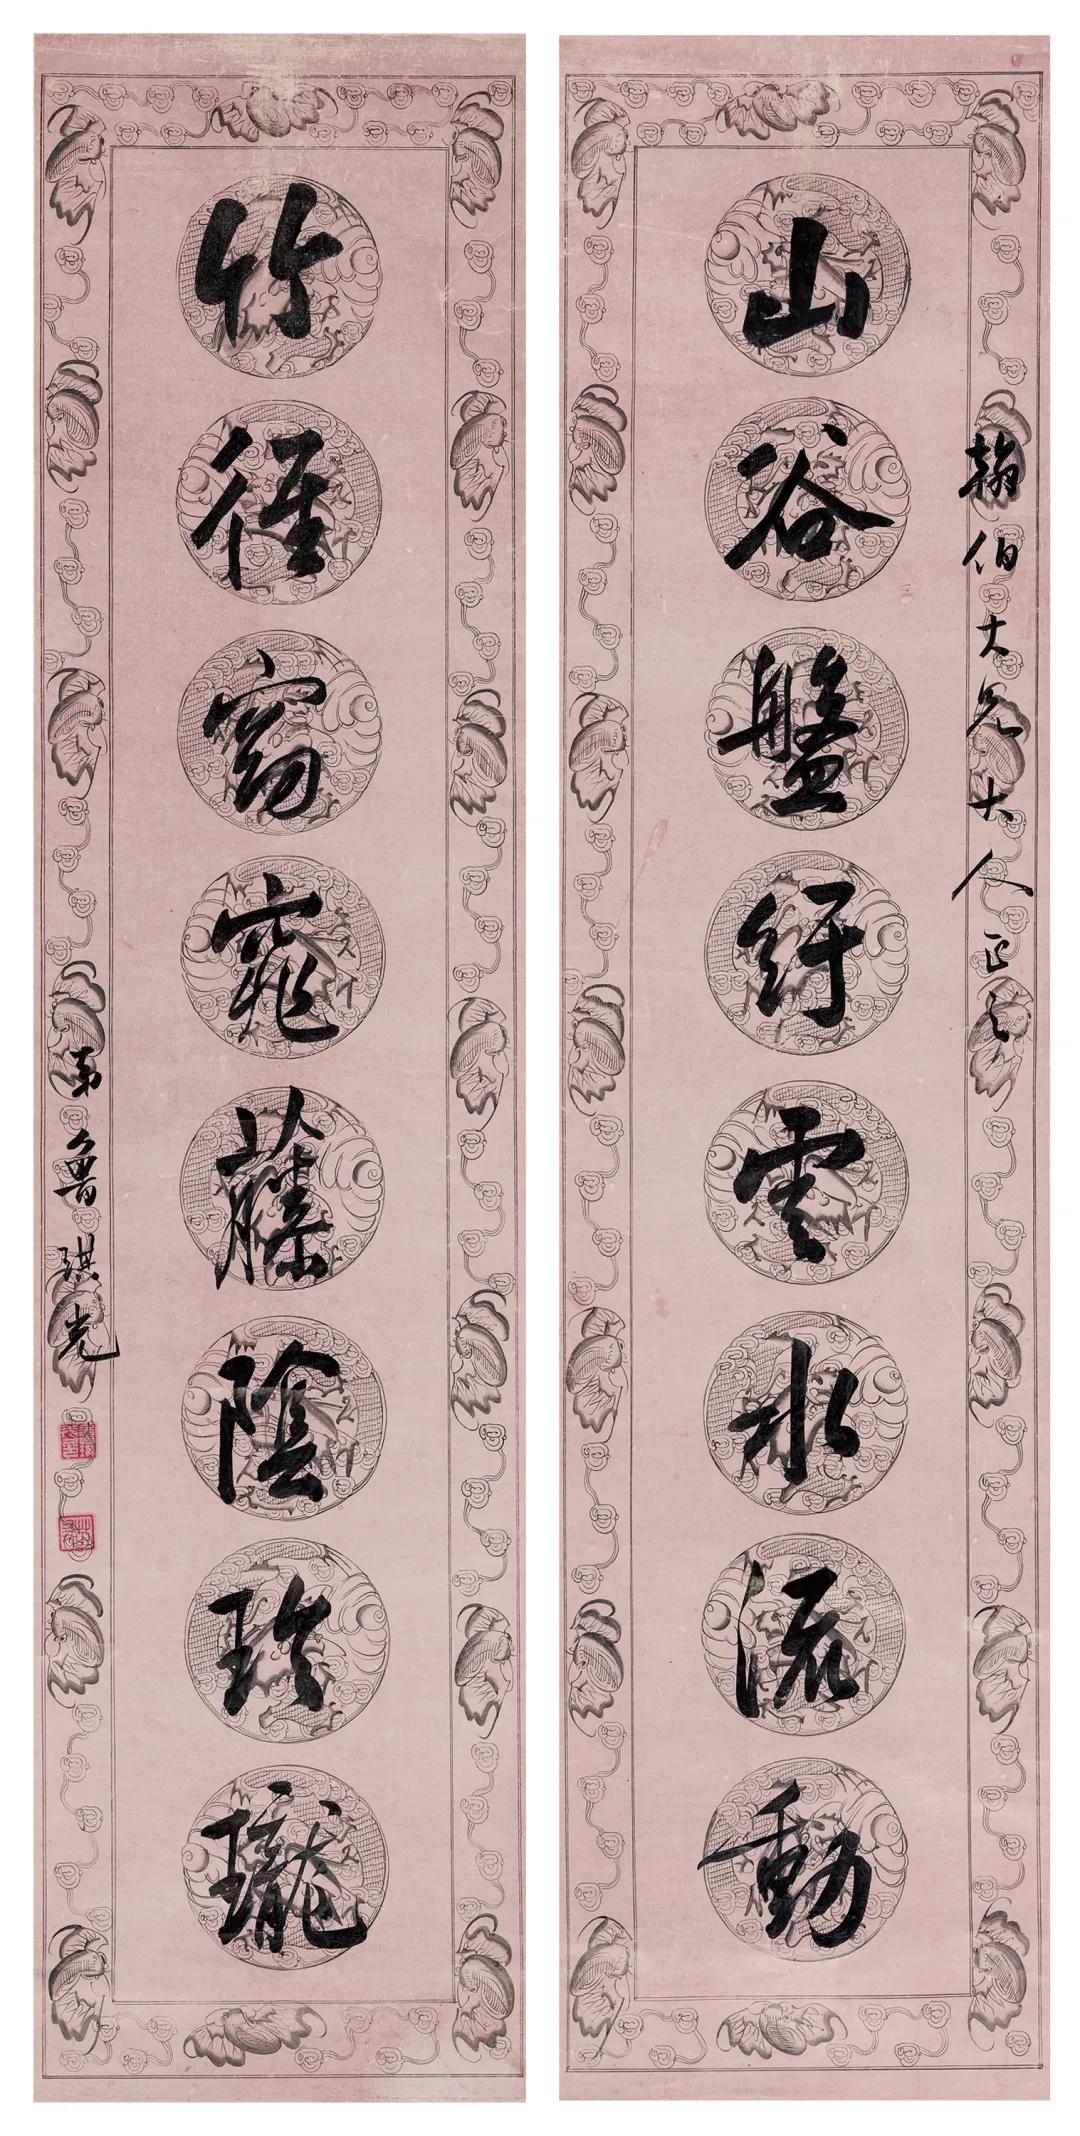 翰伯大兄大人正之
山谷盤紆雲水流動
竹徑窈窕藤陰玲瓏
弟魯琪光